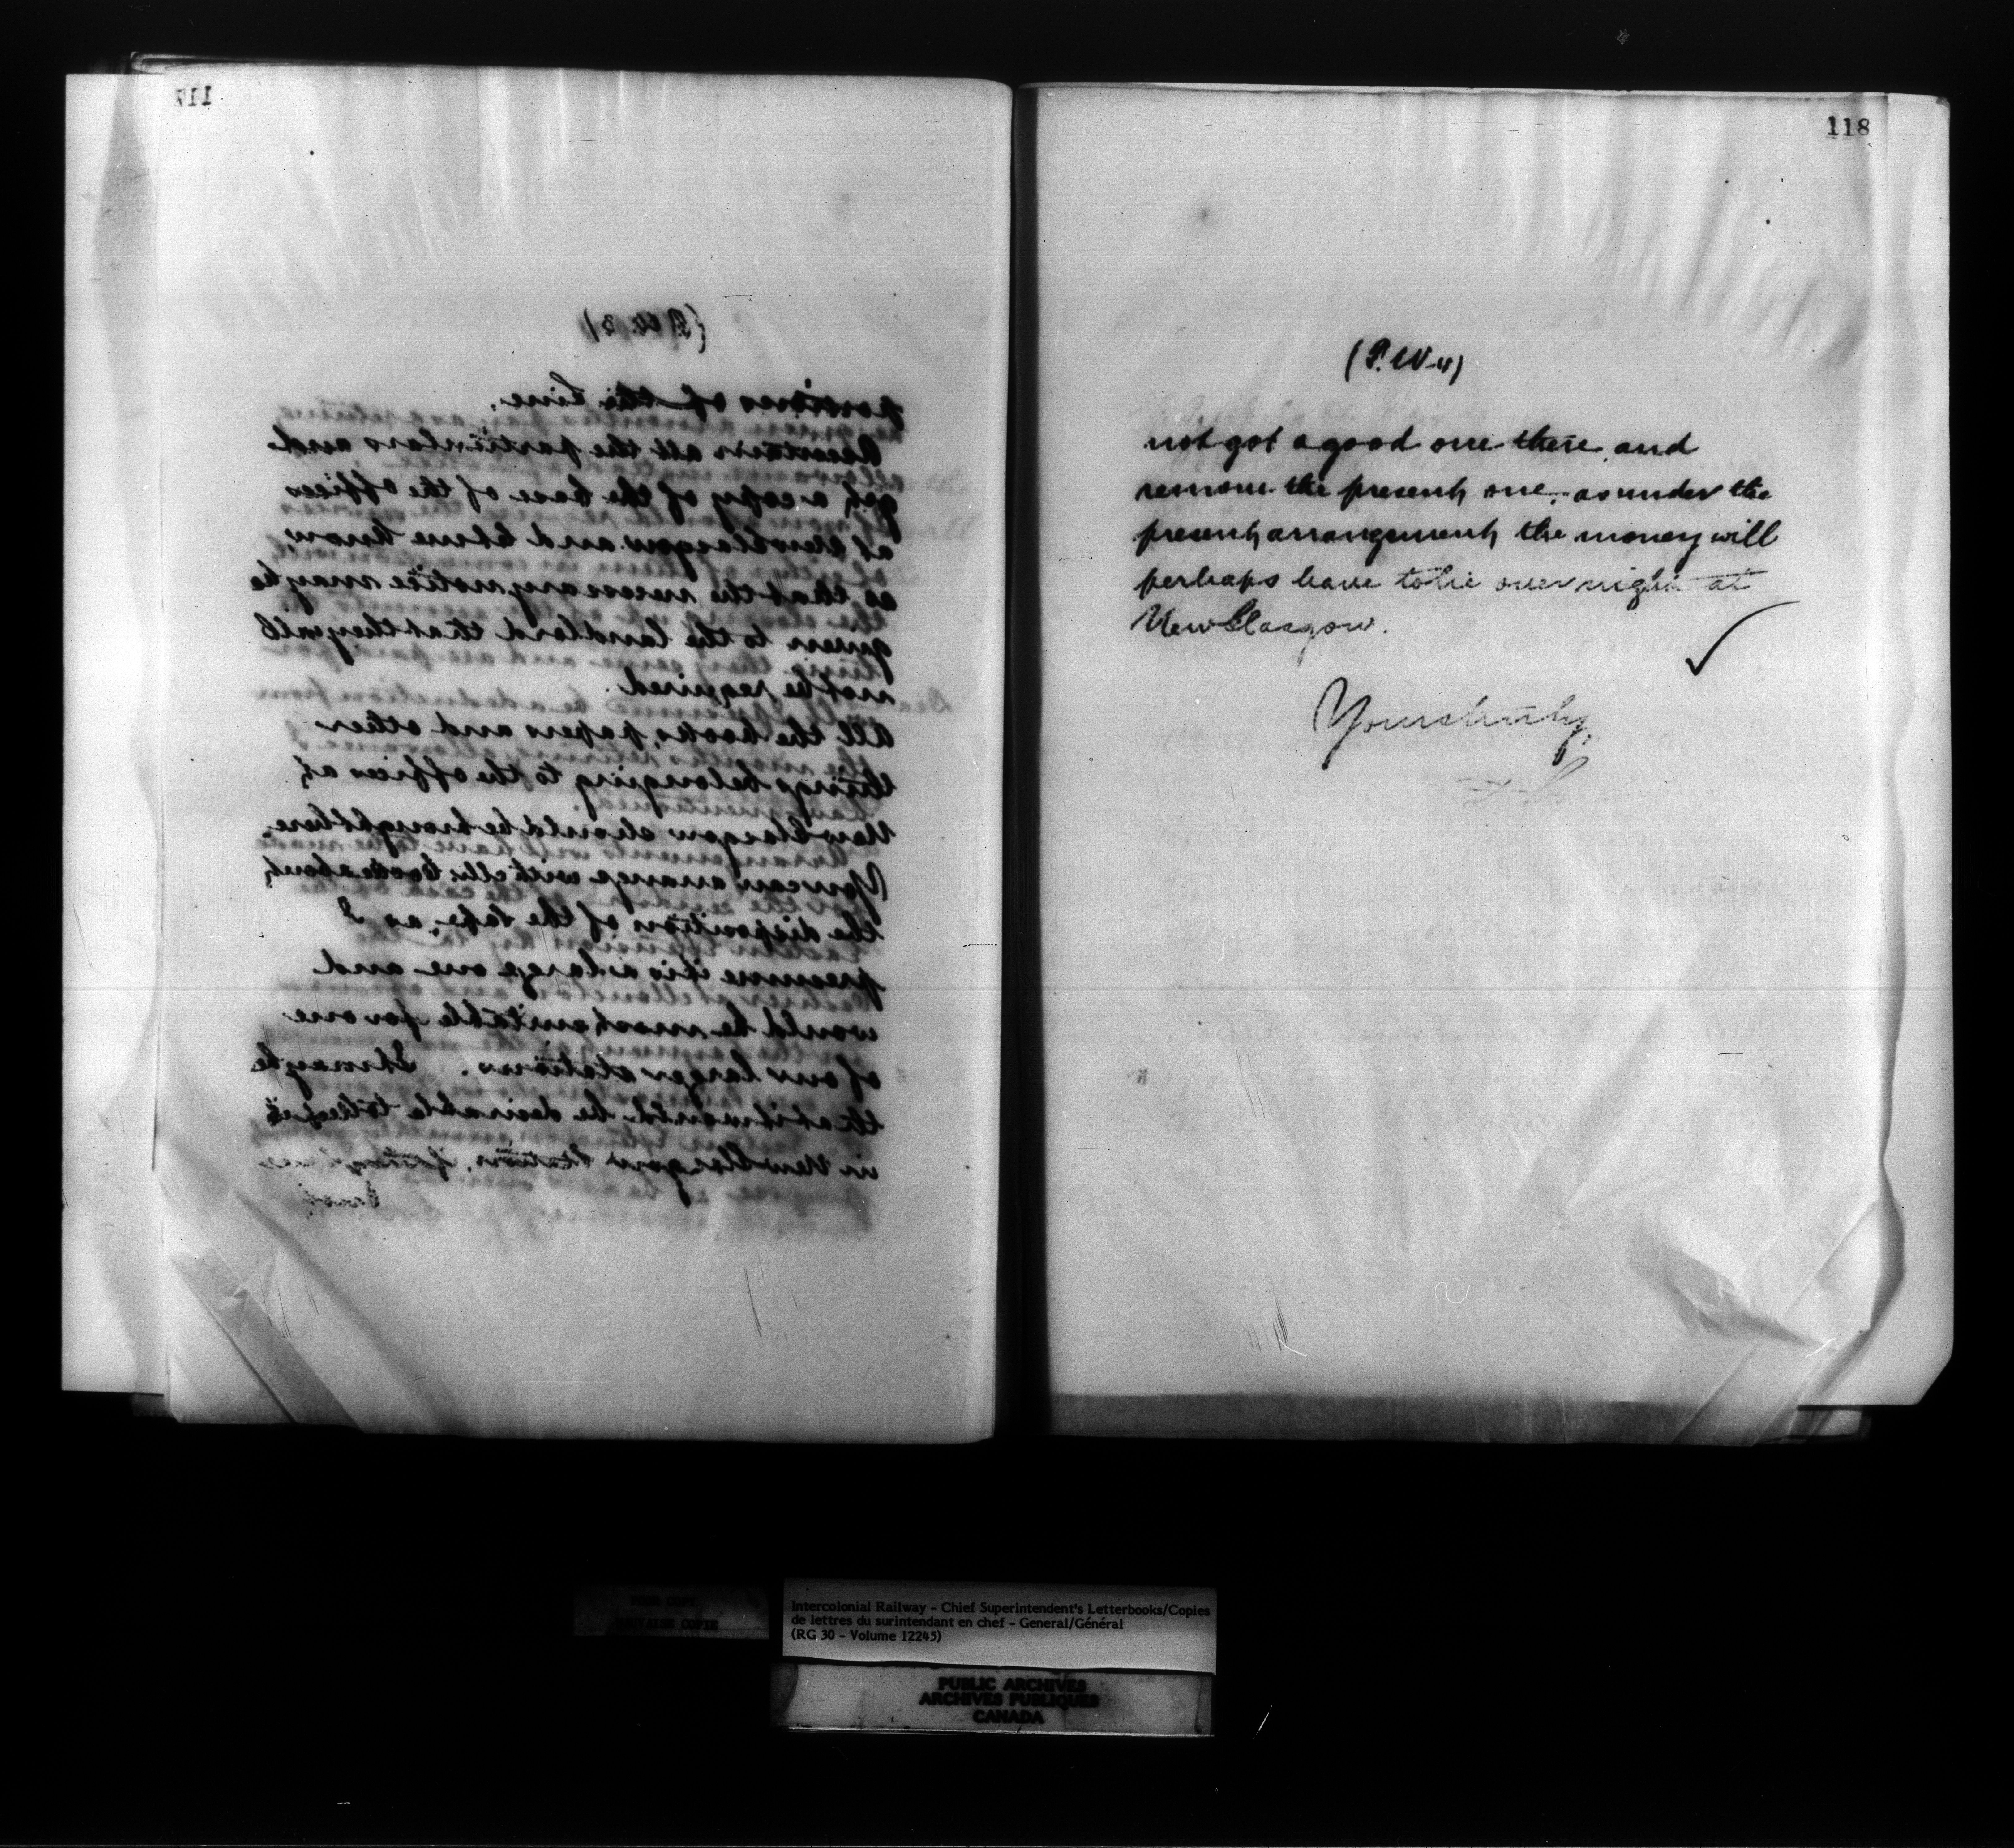 117
(P. W. 3)
portions of the line.
Ascertain all the particulars and
get a copy of the lease of the offices
at New Glasgow and let me know
so that the necessary notice may be
given to the landlord that they will
not be required.
All the books, papers and other
things belonging to the offices at
New Glasgow should be brought here.
You can arrange with Mr about
the disposition of the safe, as I
presume it is a large one and
would be most suitable for one
of our larger stations. It may be
that it would be desirable to keep it
in New Glasgow Station, if they have
118
(P. W-4)
not got a good one there, and
remove the present one, as under the
present arrangement the money will
perhaps have to lie over night at
New Glasgow.
Yours truly,
Intercolonial Railway - Chief Superintendent's Letterbooks/Copies
de lettres du surintendant en chef - General/Général
(RG 30 - Volume 12245)
PUBLIC ARCHIVES
ARCHIVES PUBLIQUES
CANADA